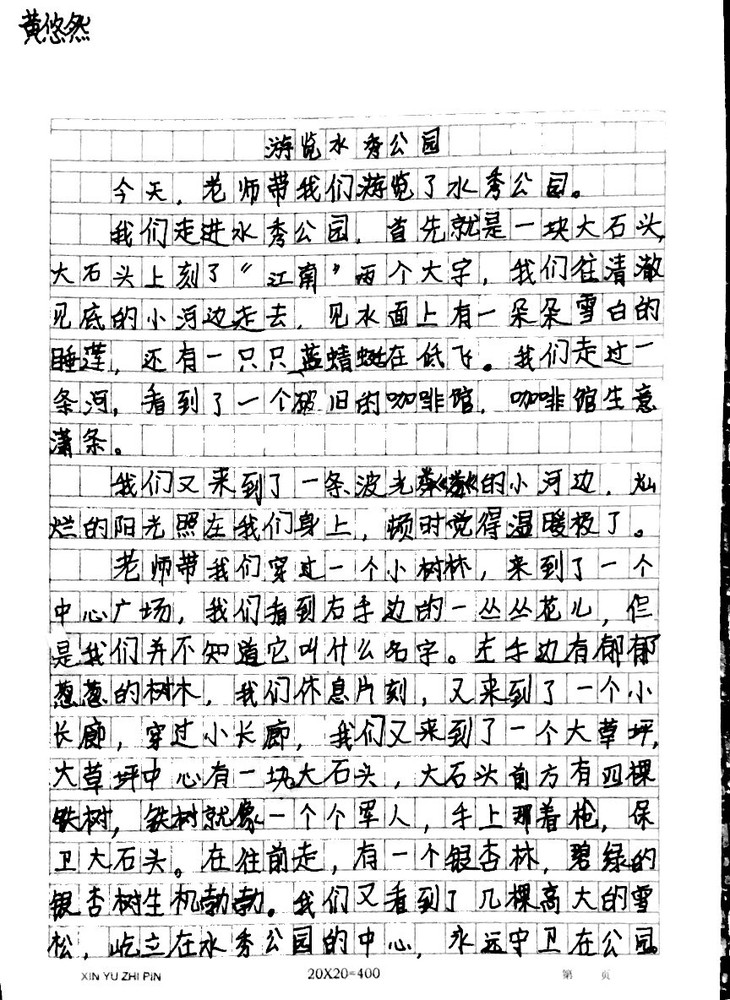 黄悠然
游览水秀公园
今天，老师带我们游览了水秀公园。
我们走进水秀公园，首先就是一块大石头，
大石头上刻了“江南”两个大字，我们往清澈
见底的小河边走去，见水面上有一朵朵雪白的
睡莲，还有一只只蓝蜻蜓在低飞。我们走过一
条河，看到了一个破旧的咖啡馆，咖啡馆生意
潇条。
我们又来到了一条波光的小河边，灿
烂的阳光照在我们身上，顿时觉得温暖极了。
老师带我们穿过一个小树林，来到了一个
中心广场，我们看到右手边的一丛丛花儿，但
是我们并不知道它叫什么名字。左手边有郁郁
葱葱的树木，我们休息片刻，又来到了一个小
长廊，穿过小长廊，我们又来到了一个大草坪，
大草坪中心有一块大石头，大石头前方有四棵
铁树，铁树就像一个个军人，手上那着枪，保
卫大石头。在往前走，有一个银杏林，碧绿的
银杏树生机勃勃。我们又看到了几棵高大的雪
松，屹立在水秀公园的中心，永远守卫在公园。
XIN YU ZHI PIN
20X20=400
第 页